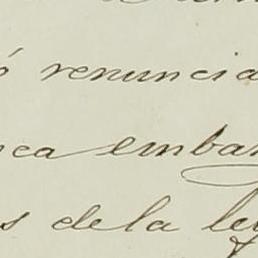 ó renuncia
nca embar
s de la ley